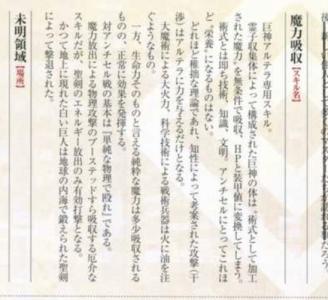 魔力吸収【スキル名】
巨神アルテラ専用スキル。
霊子収集体によって構成された巨神の体は、術式として加工
された魔力を無条件で吸収、HPと装甲値に変換してしまう。
術式とは即ち技術、知識、文明。アンチセルにとってこれほ
ど〝栄養〟になるものはない。
どれほど稚拙な理論であれ、知性によって考案された攻撃（干
渉）はアルテラに力を与えるだけとなる。
大魔術による大火力、科学技術による戦術兵器は火に油を注
ぐようなもの。
一方、生命力そのものと言える純粋な魔力は多少吸収される
ものの、正常に効果を発揮する。
対アンチセル戦の基本は『単純な物理で殴れ』である。
魔力放出による物理攻撃のブーステッドすら吸収する厄介な
スキルだが、聖剣のエネルギー放出のみ有効打撃となる。
かつて地上に現れた白い巨人は地球の内海で鍛えられた聖剣
によって撃退された。
未明領域【場所】